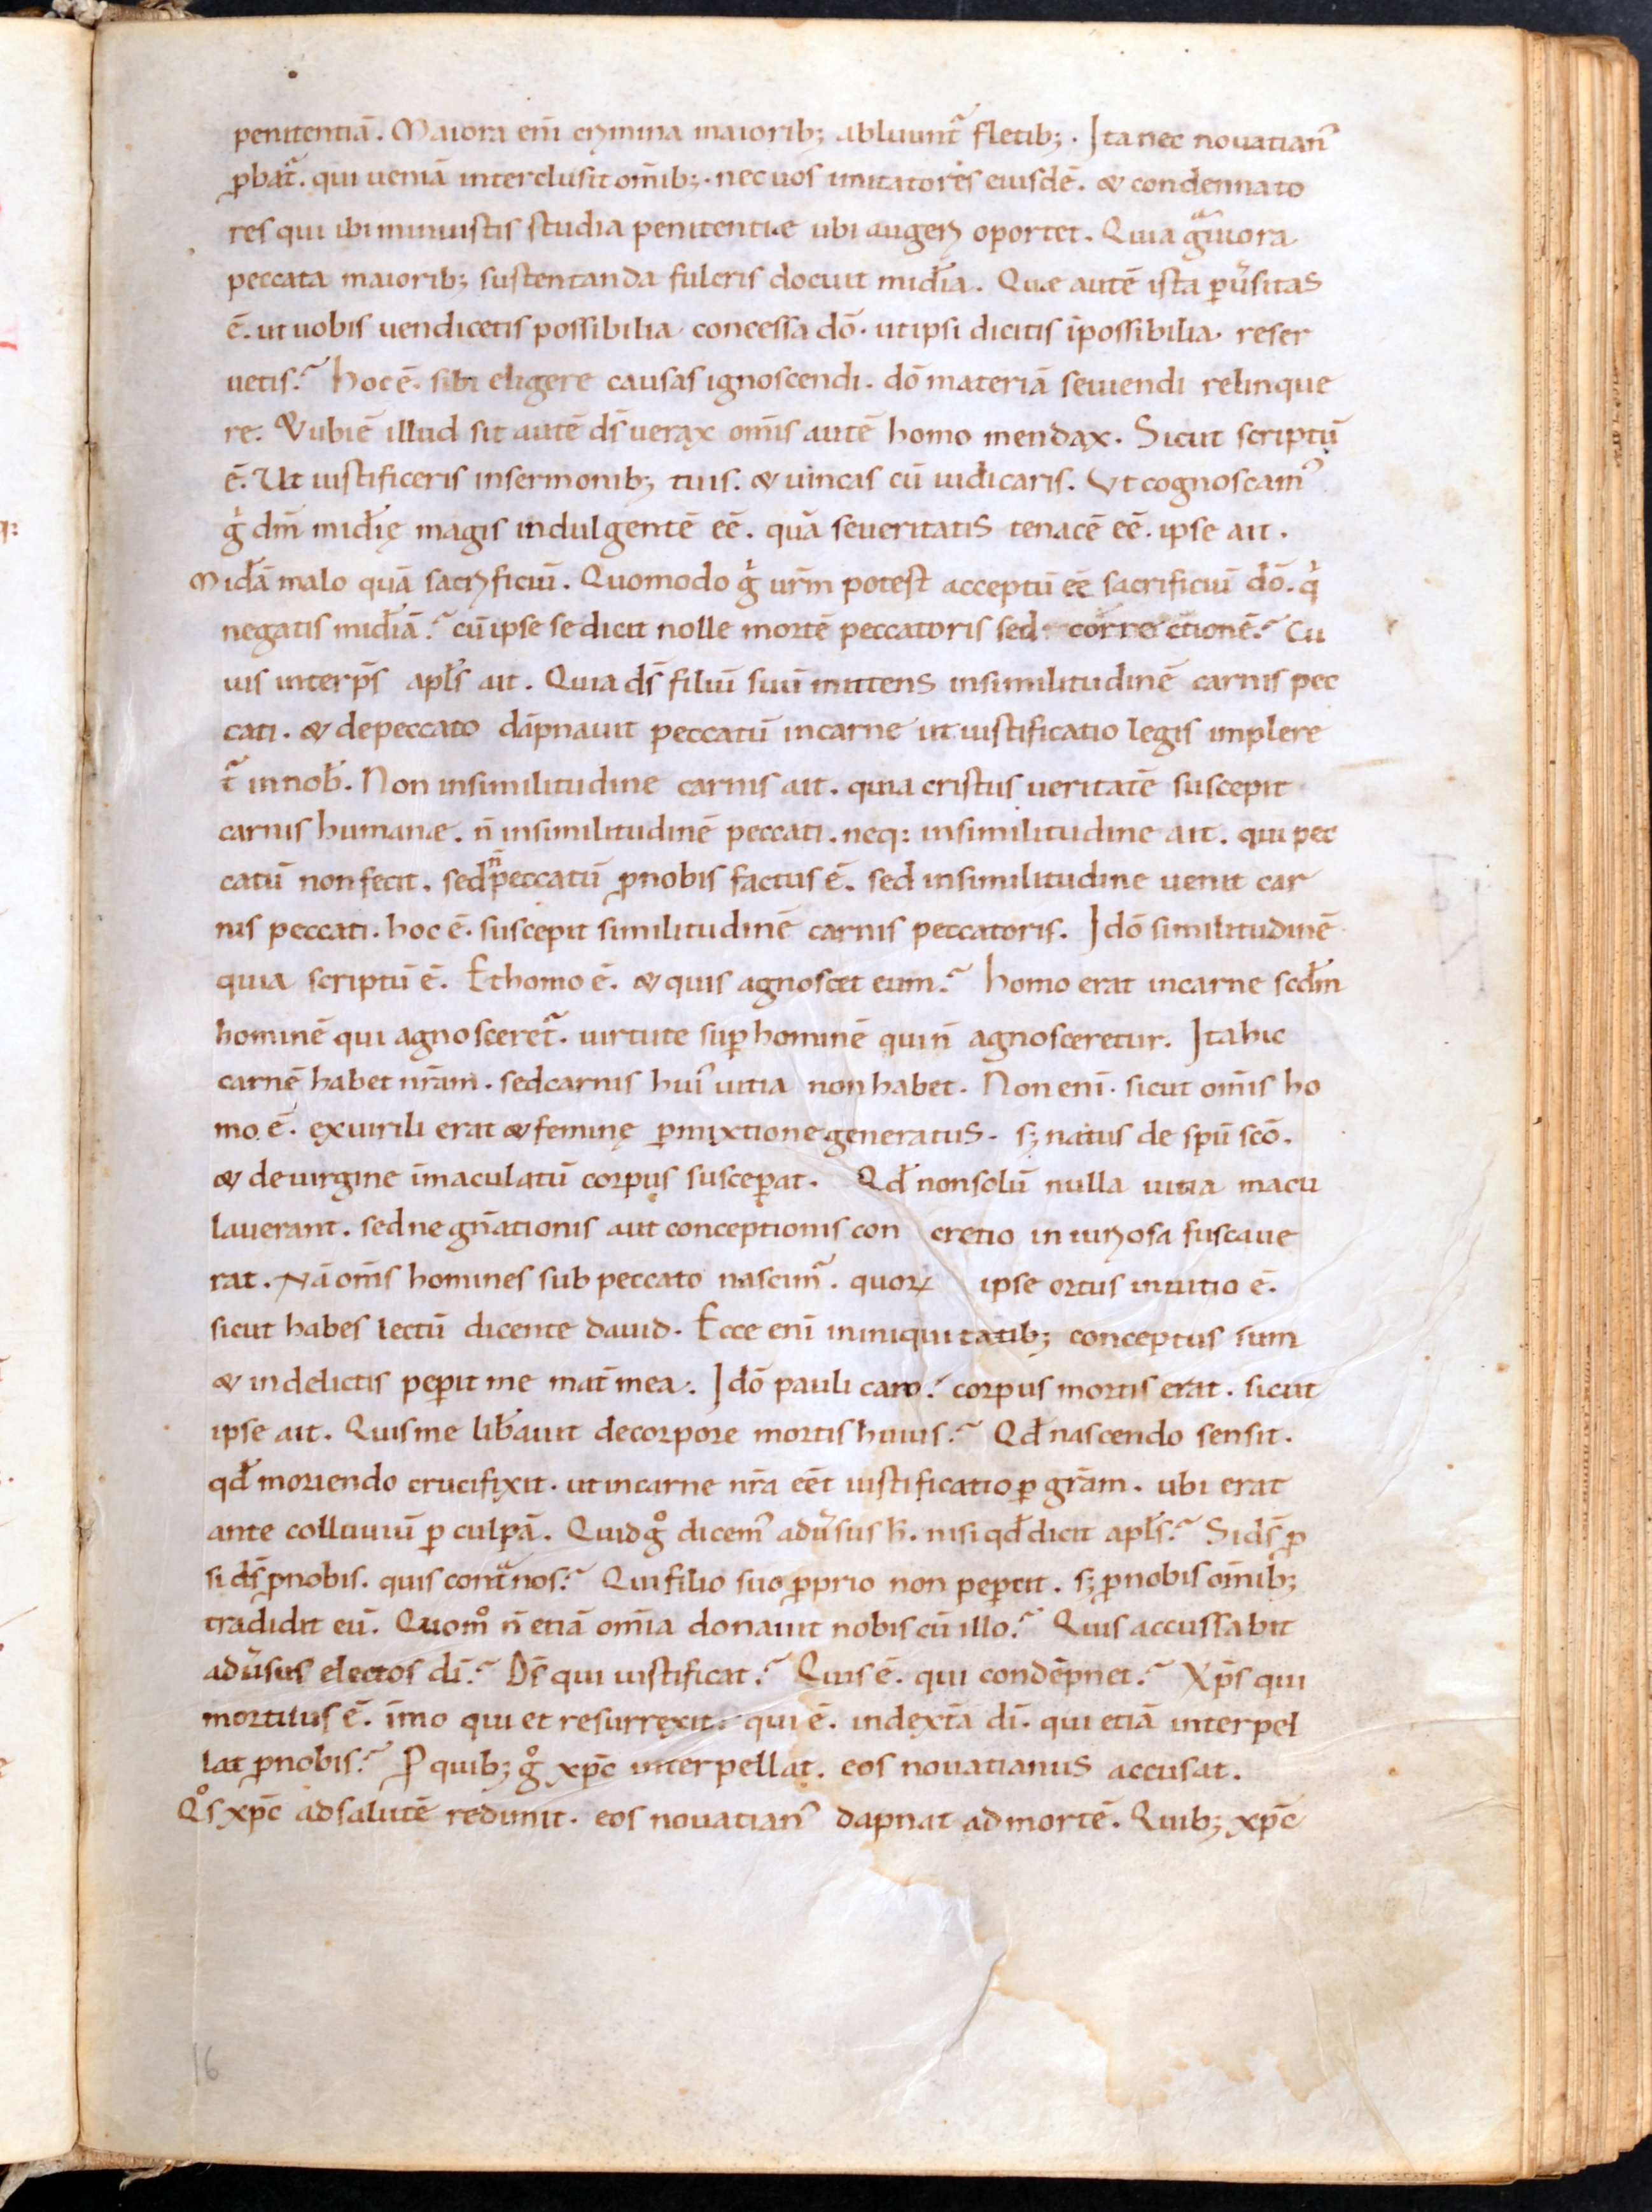 penitentiā. Maiora eni᷑ crimina maiorib; abluunt᷑ fletib;. Ita nec nouatian᾽
ꝓbat᷑. qui ueniā interclusit om̄ib;. nec uos imitatores eiusdē. & condemnato
res qui ibi minuistis studia penitentiae ubi augeri oportet. Quia gᵃuiora
peccata maiorib; sustentanda fulcris docuit mid̄ia. Quae autē ista ꝑu᷑sitas
ē. ut uobis uendicetis possibilia concessa dō. ut ipsi dicitis īpossibilia reser
uetis? hoc ē. sibi eligere causas ignoscendi. dō materiā seuiendi relinque
re. & ubi ē illud sit autē ds̄ uerax om̄is autē homo mendax. Sicut scriptū
ē. Ut iustificeris in sermonib; tuis. & uincas cū iudicaris. Ut cognoscam᾽
gͥ dm̄ mid̄ię magis indulgentē eē. quā seueritatis tenacē eē. ipse ait.
Mid̄ā malo quā sacrificiū. Quomodo gͥ ur̄m potest acceptū eē sacrificiū dō. qͥ
negatis mid̄iā? cū ipse se dicit nolle mortē peccatoris sed correctionē? Cu
ius interp̄s apl̄s ait. Quia ds̄ filiū suū mittens in similitudinē carnis pec
cati. & de peccato dāpnauit peccatū in carne ut iustificatio legis implere
t᷑ in nob̄. Non in similitudine carnis ait. quia cristus ueritatē suscepit
carnis humanae. n̄ in similitudinē peccati. neq: in similitudine ait. qui pec
catū non fecit. sed n̄ peccatū ꝓ nobis factus ē. sed in similitudine uenit car
nis peccati. hoc ē. suscepit similitudinē carnis peccatoris. Idō similitudinē
quia scriptū ē. Et homo ē. & quis agnoscet eum? homo erat in carne scd̄m
hominē qui agnosceret᷑. uirtute suꝑ hominē qui n̄ agnosceretur. Ita hic
carnē habet nr̄am. sed carnis hui᾽ uitia non habet. Non enī. sicut om̄is ho
mo ē. ex uirili erat & feminę ꝑmixtione generatus. s; natus de spū scō.
& de uirgine īmaculatū corpus susceꝑat. Qd̄ non solū nulla uitia macu
lauerant. sed ne gn̄ationis aut conceptionis con cretio in iuriosa fuscaue
rat. Nā om̄s homines sub peccato nascim᾽. quoꝝ ipse ortus in uitio ē.
sicut habes lectū dicente dauid. Ecce enī in iniquitatib; conceptus sum
& in delictis peꝑit me mat̄ mea. Idō pauli caro? corpus mortis erat. sicut
ipse ait. Quis me lib̄auit de corpore mortis huius? Qd̄ nascendo sensit.
qd̄ moriendo crucifixit. ut in carne nr̄a eēt iustificatio ꝑ gr̄am. ubi erat
ante colluuiū ꝑ culpā. Quid gͦ dicem᾽ adu᷑sus h̄. nisi qd̄ dicit apl̄s? Si ds̄ ꝓ
si ds̄ ꝓ nobis. quis contᵃ nos? Qui filio suo ꝓprio non peꝑcit. s; ꝓ nobis om̄ib;
tradidit eū. Quomͦ n̄ etiā om̄ia donauit nobis cū illo? Quis accussabit
adu᷑sus electos dī? Ds̄ qui iustificat? Quis ē. qui condēpnet? Xp̄s qui
mortuus ē. īmo qui et resurrexit. qui ē. in dext̄a dī. qui etiā interpel
lat ꝓ nobis? P quib; gͦ xp̄c interpellat. eos nouatianus accusat.
Qͦs xp̄c ad salutē redimit. eos nouatian᾽ dapnat ad mortē. Quib; xp̄c
16